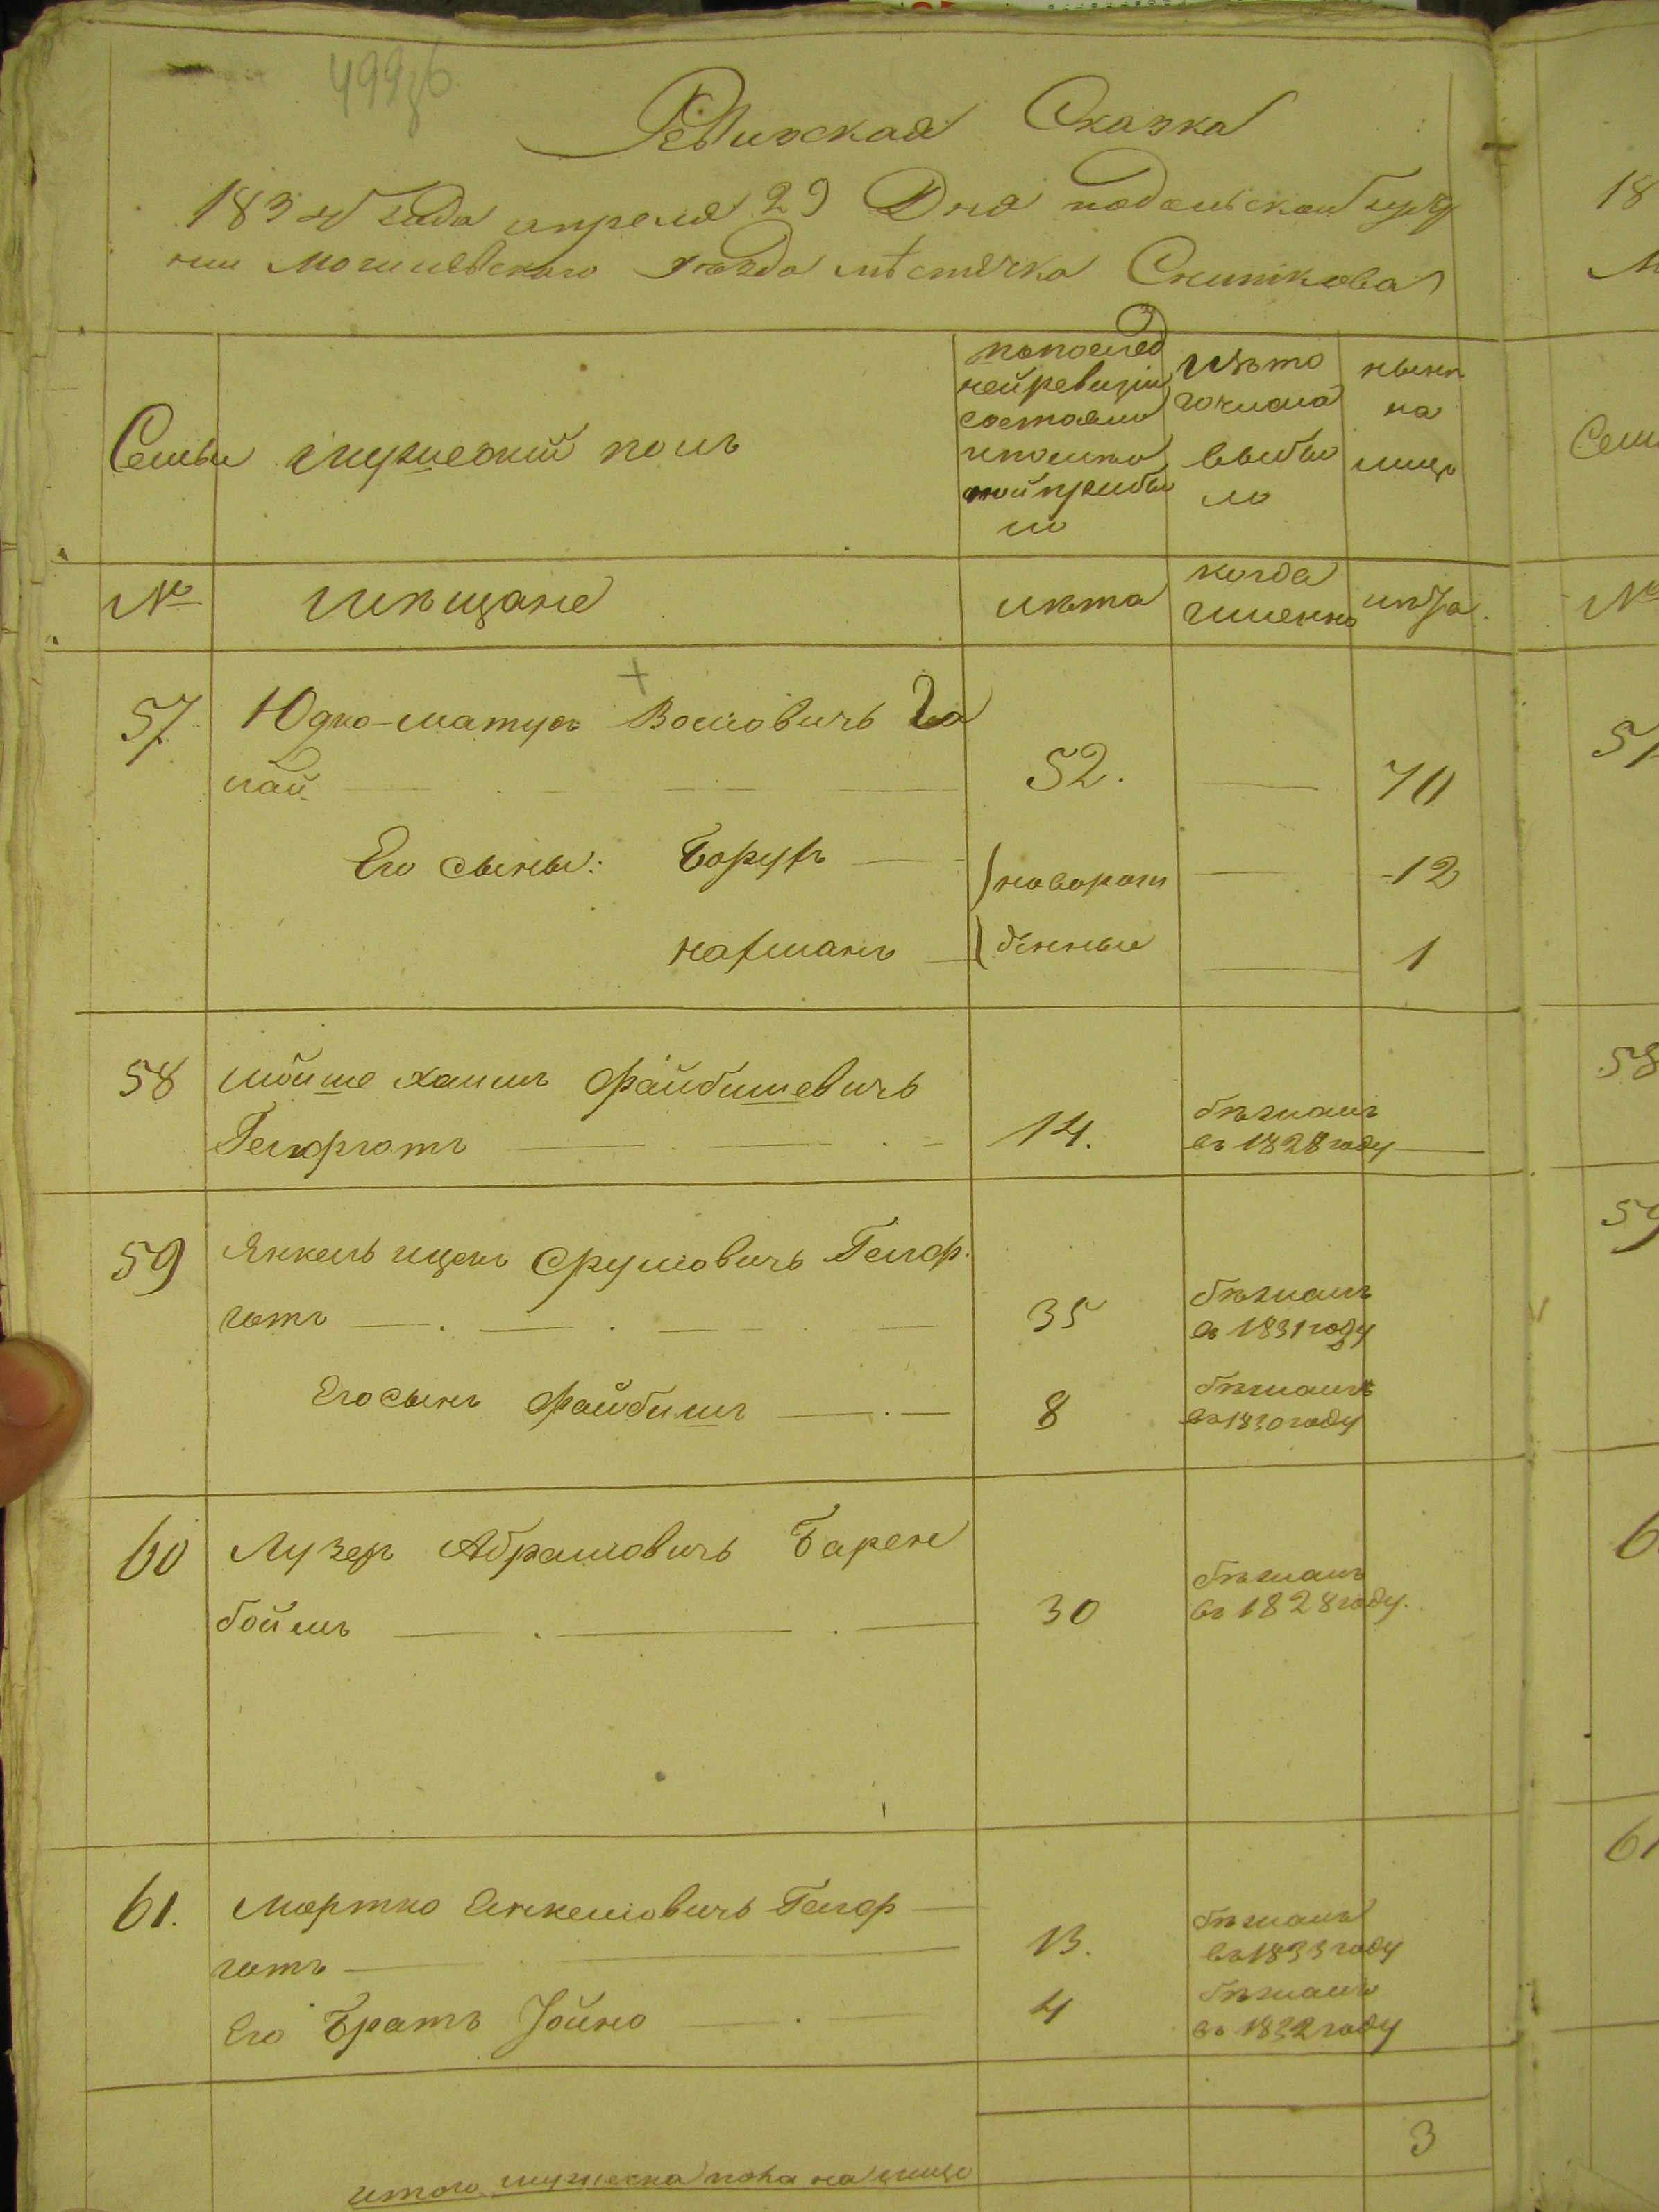 499об
Ревизская Сказка
1834 года апреля 29 Дня подольской губер
нии Могилевского уезда мѣстечка Сниткова
Семьи
мужеский полъ
попослед
ней ревизіи
состояло
ипослѣ
той прибы
ло
Изъ то
го числа
выбы
ло
нынѣ
на
лицо
№
мѣщане
лѣта
когда
имянно
лѣта.
57
Юдко-матусъ Волковичъ Га
лай
52.
70
Его сыны: Борухъ
новорож
12
нахманъ
денные
1
58
мойше хаимъ файбишевичъ
Гелфготъ
14.
бѣжалъ
въ 1828 году
59
Янкель ицекъ Сруловичъ Гелф
готъ
35
бѣжалъ
въ 1831 году
Его сынъ файбишъ
8
бѣжалъ
въ 1830 году
60
Лузеръ Абрамовичъ Барен
боймъ
30
бѣжалъ
въ 1828 году.
61.
Мортко Янкелевичъ Гелф
готъ
13.
бѣжалъ
въ 1833 году
Его Братъ Іойно
4
бѣжалъ
въ 1832 году
3
итого мужеска пола на лицо
18
М
Семьи
№
57
58
59
6
61